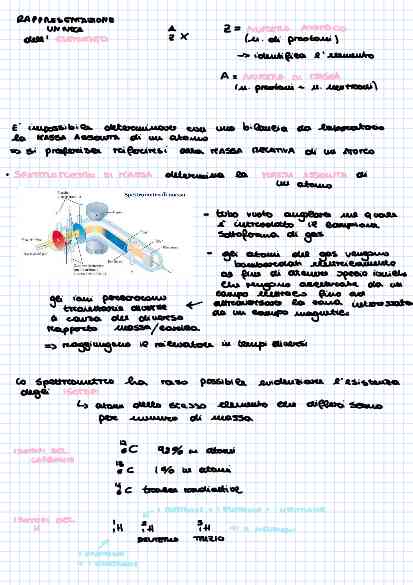 RAPPRESENTAZIONE
UNIVOCA
dell' ELEMENTO
A
Z X
Z = NUMERO ATOMICO
(n. di protoni)
→ identifica l'elemento
A = NUMERO DI MASSA
(n. protoni + n. neutroni)
E' impossibile determinare con una bilancia da laboratorio
la MASSA ASSOLUTA di un atomo
⇒ si preferisce riferirsi alla MASSA RELATIVA di un ATOMO
• SPETTROMETRO DI MASSA determina la MASSA ASSOLUTA di
un atomo
Spettrometro di massa
- tubo vuoto
è introdotto il campione
sottoforma di gas
- gli atomi del gas vengono
bombardati elettricamente
al fine di ottenere specie ioniche
che vengono accelerate da un
campo elettrico fino ad
attraversare la zona interessata
da un campo magnetico
gli ioni percorrono
traiettorie diverse
a causa del diverso
rapporto massa/carica
⇒ raggiungono il rilevatore in tempi diversi
Lo spettrometro ha reso possibile evidenziare l'esistenza
degli ISOTOPI
↳ atomi dello stesso elemento che differiscono
per numero di massa
ISOTOPI DEL
CARBONIO
C 99% in atomi
C 1% in atomi
C tracce radioattive
ISOTOPI DEL
H
1 PROTONE + 1 ELETTRONE + 1 NEUTRONE
H H H
DEUTERIO TRIZIO
1 PROTONE
+ 1 ELETTRONE